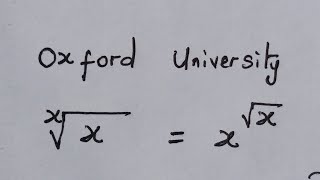 Oxford University
ˣ√x = x^√x